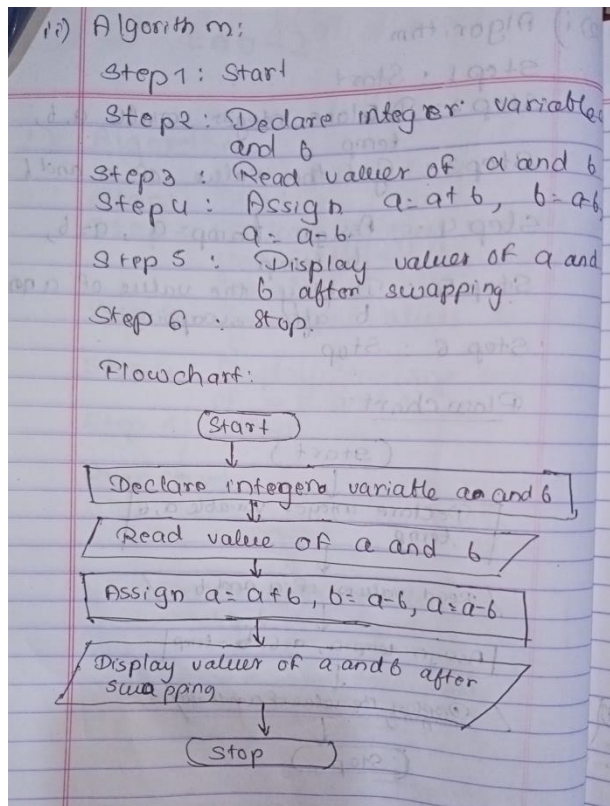 ii) Algorithm:
Step 1: Start
Step 2: Declare integer variable
and b
Step 3: Read values of a and b
Step 4: Assign a=a+b, b=a-b,
a=a-b.
Step 5: Display values of a and
b after swapping
Step 6: Stop.
Flowchart:
Start
Declare integer variable a and b
Read value of a and b
Assign a=a+b, b=a-b, a=a-b
Display values of a and b after
swapping
Stop